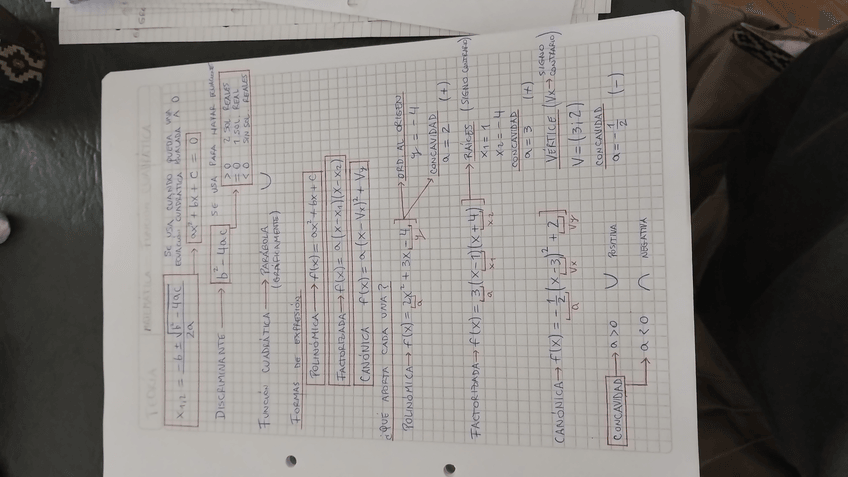 x₁,₂ = -b ± √b² - 4ac / 2a
SE USA CUANDO QUEDA UNA
ECUACIÓN CUADRÁTICA IGUALADA A 0
→ ax² + bx + c = 0
DISCRIMINANTE → b² - 4ac SE USA PARA HALLAR
> 0 2 SOL. REALES
= 0 1 SOL. REAL
< 0 SIN SOL REALES
FUNCIÓN CUADRÁTICA → PARÁBOLA
(GRÁFICAMENTE)
FORMAS DE EXPRESIÓN
POLINÓMICA → f(x) = ax² + bx + c
FACTORIZADA → f(x) = a(x-x₁)(x-x₂)
CANÓNICA f(x) = a(x-Vx)² + Vy
¿QUÉ APORTA CADA UNA?
POLINÓMICA → f(x) = 2x² + 3x - 4 → ORD AL ORIGEN
a y
y = -4
CONCAVIDAD
a = 2 (+)
FACTORIZADA → f(x) = 3(x-1)(x+4) → RAÍCES (SIGNO CONTRARIO)
a x₁ x₂
x₁ = 1
x₂ = -4
CONCAVIDAD
a = 3 (+)
CANÓNICA → f(x) = -1/2(x-3)² + 2
a Vx Vy
VÉRTICE (Vx → SIGNO CONTRARIO)
V = (3; 2)
CONCAVIDAD
a = -1/2 (-)
CONCAVIDAD → a > 0 ∪ POSITIVA
→ a < 0 ∩ NEGATIVA